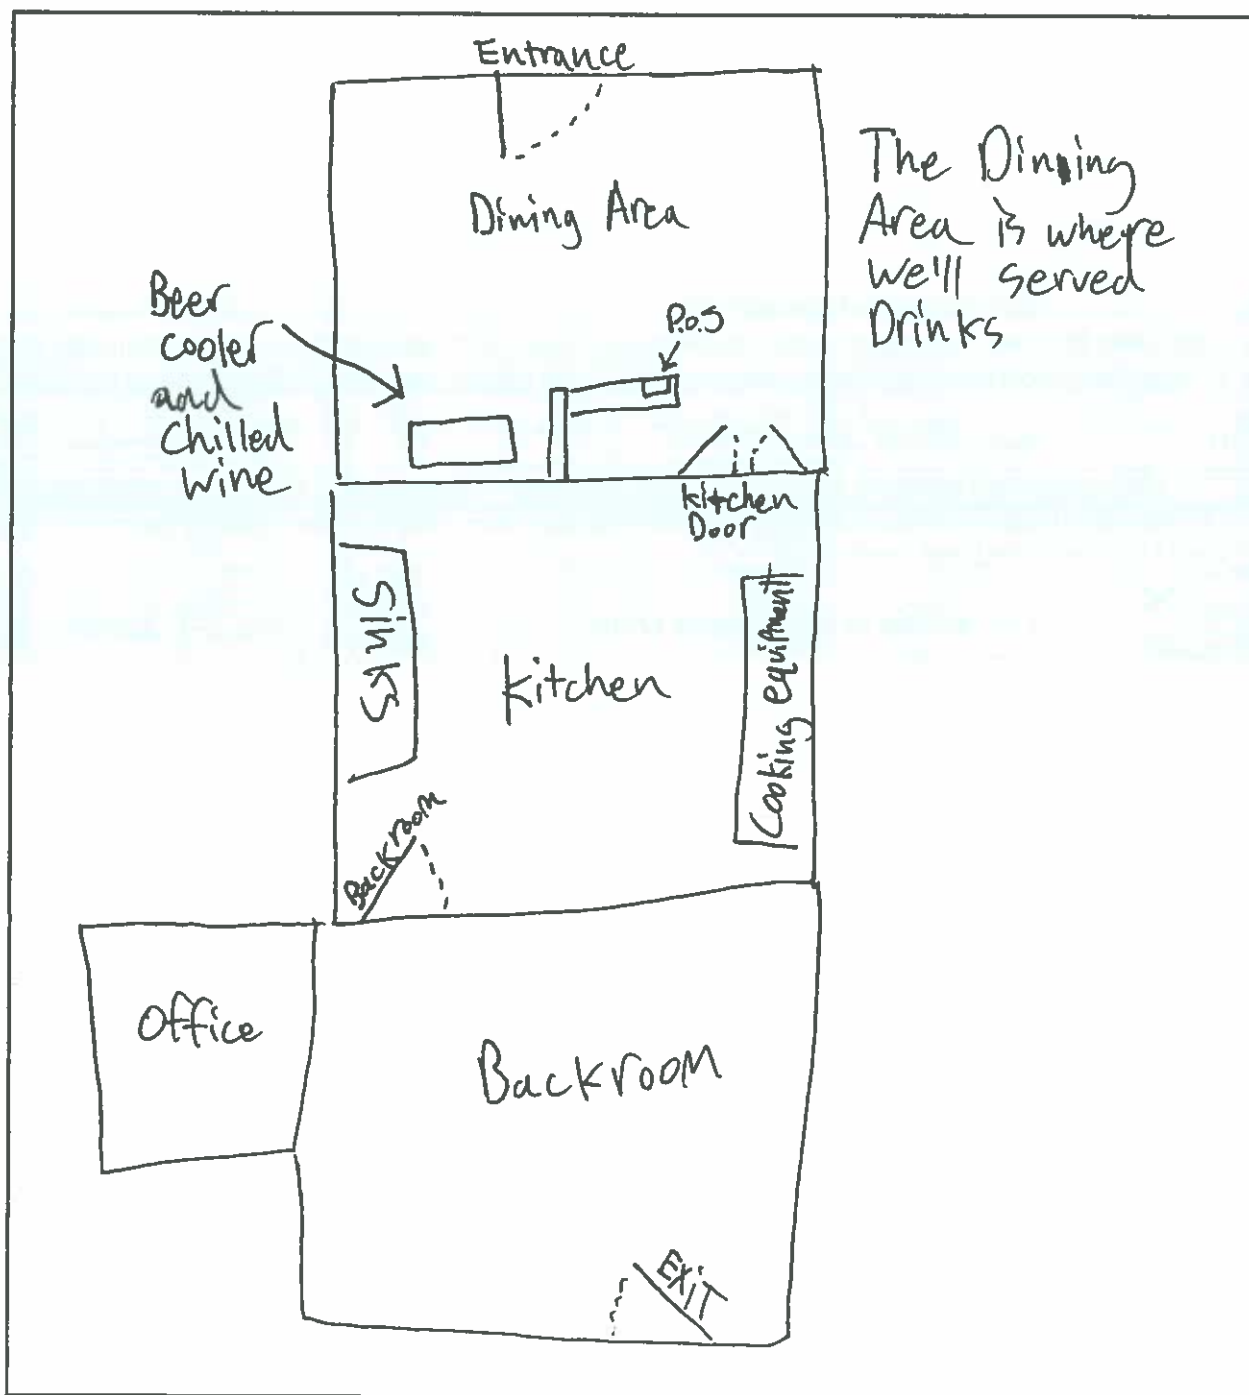 Entrance
Dining Area
The Dinning
Area is where
we'll served
Drinks
Beer
cooler
and
Chilled
wine
P.O.S
Kitchen
Door
Sinks
Kitchen
Cooking equipment
Backroom
Office
Backroom
EXIT